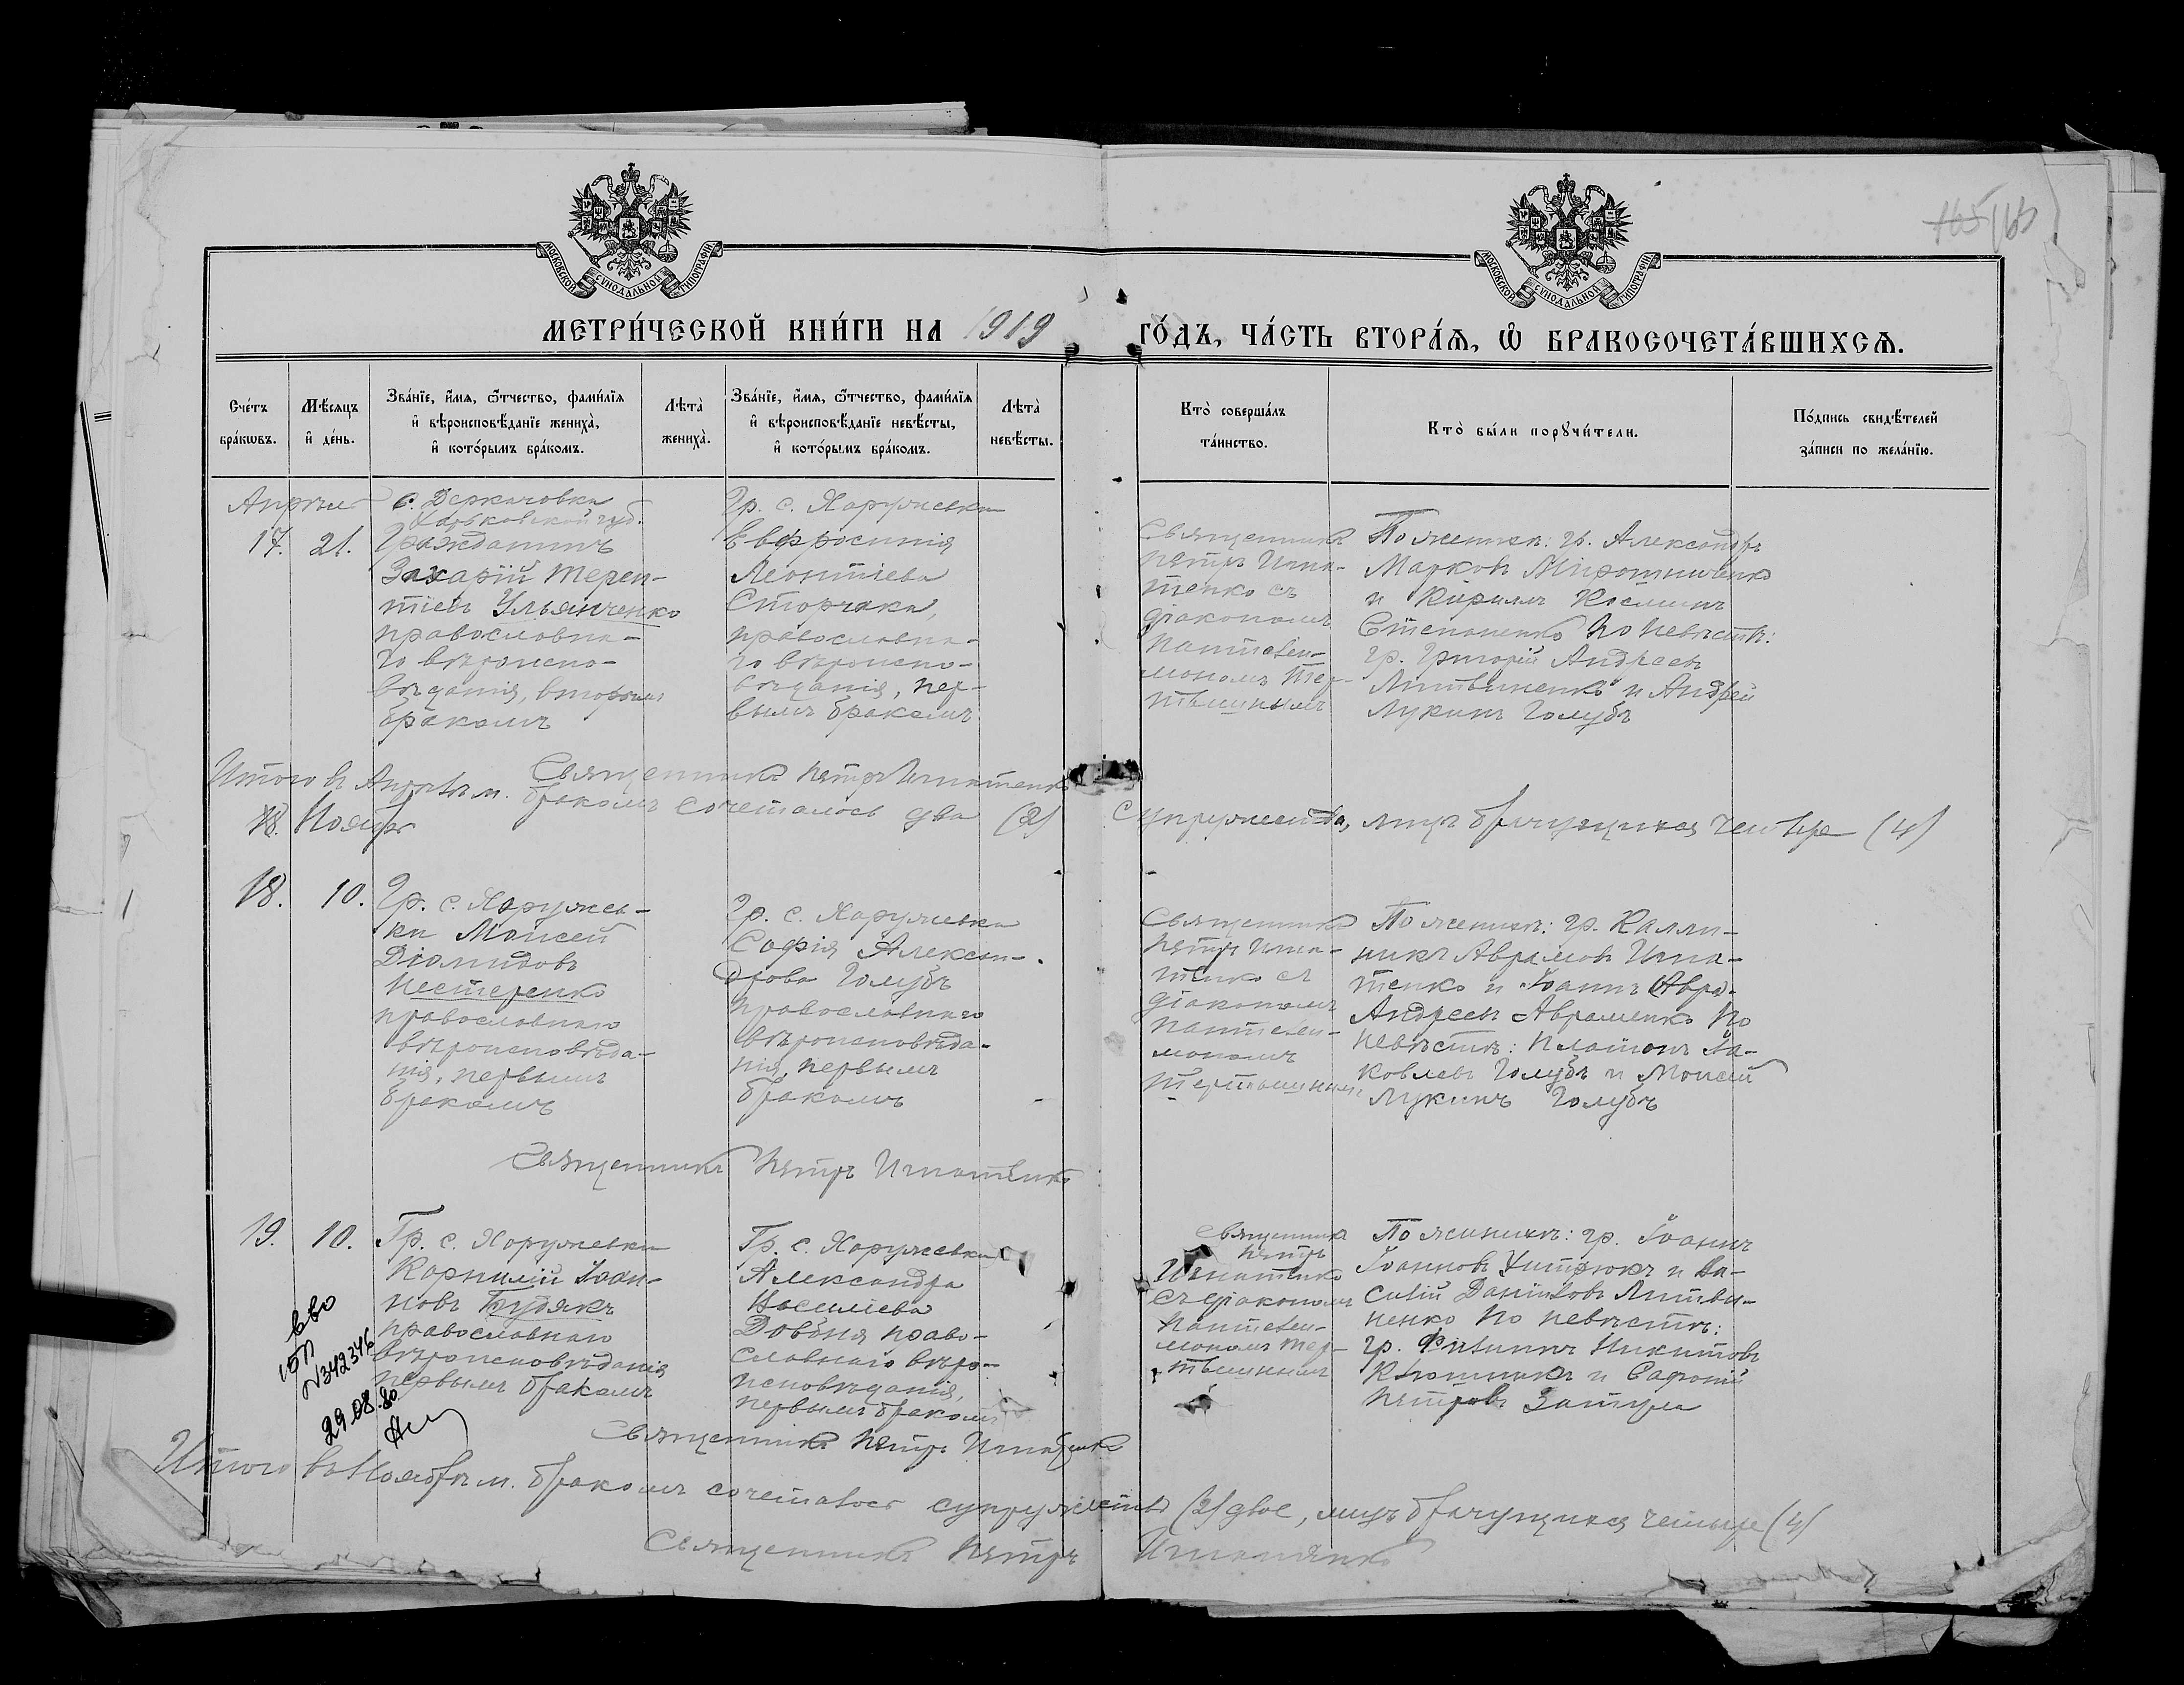 165 165
МОСКОВСКОЙ СУНОДАЛЬНОЙ ТИПОГРАФІИ
МОСКОВСКОЙ СУНОДАЛЬНОЙ ТИПОГРАФІИ
МЕТРИ́ЧЕСКОЙ КНИ́ГИ НА 1919 ГО́ДЪ, ЧА́СТЬ ВТОРА́Ѧ, Ѽ БРАКОСОЧЕТА́ВШИХСѦ.
Сче́тъ бра́кѡвъ.
Мѣ́сѧцъ и҆ де́нь.
Зва́нїе, и҆́мѧ, ѻ҆́тчество, фами́лїѧ и҆ вѣроисповѣ́данїе жениха̀, и҆ кото́рымъ бра́комъ.
Лѣта̀ жениха̀.
Зва́нїе, и҆́мѧ, ѻ҆́тчество, фами́лїѧ и҆ вѣроисповѣ́данїе невѣ́сты, и҆ кото́рымъ бра́комъ.
Лѣта̀ невѣ́сты.
Кто̀ соверша́лъ та́инство.
Кто̀ бы́ли порꙋчи́тели.
По́дпись свидѣ́телей за́писи по жела́нїю.
Апрѣль
17. 21.
с. Деркачовка
Харьковской губ.
Гражданинъ
Захарій Терен-
тіевъ Ульянченко
православна-
го вѣроиспо-
вѣданія, вторымъ
бракомъ
Гр. с. Харужевки
Евфросинія
Леонтіева
Сторчака,
православна-
го вѣроиспо-
вѣданія, пер-
вымъ бракомъ
Священникъ
Петръ Игна-
тенко съ
діакономъ
Пантелеи-
мономъ Тер-
тышнымъ
По женихѣ: гр. Александръ
Марковъ Мирошниченко
и Кириллъ Косминъ
Степаненко по невѣстѣ:
гр. Григорій Андреевъ
Литвиненко и Андрей
Лукинъ Голубъ
Священникъ Петръ Игнатенко
Итого въ Апрѣлѣ м. бракомъ сочеталось два (2) супружества, лицъ брачущихся четыре (4)
18. Ноябрь
18. 10.
Гр. с. Харужев-
ки Моисей
Діомидовъ
Нестеренко
православнаго
вѣроисповѣда-
нія, первымъ
бракомъ
Гр. с. Харужевки
Софія Алексан-
дрова Голубъ
православнаго
вѣроисповѣда-
нія, первымъ
бракомъ
Священникъ
Петръ Игна-
тенко съ
діакономъ
Пантелеи-
мономъ
Тертышнымъ
По женихѣ: гр. Калли-
никъ Аврамовъ Игна-
тенко и Іоаннъ Авра-
Андреевъ Авраменко по
невѣстѣ: Платонъ Іа-
ковлевъ Голубъ и Моисей
Лукинъ Голубъ
Священникъ Петръ Игнатенко
19. 10.
Гр. с. Харужевки
Корнилій Іоан-
новъ Будякъ
православнаго
вѣроисповѣданія
первымъ бракомъ
Гр. с. Харужевки
Александра
Василіева
Довбня право-
славнаго вѣро-
исповѣданія,
первымъ бракомъ
Священникъ
Петръ
Игнатенко
съ діакономъ
Пантелеи-
мономъ Тер-
тышнымъ
По женихѣ: гр. Іоаннъ
Іоанновъ и Ва-
силій Даниловъ Литви-
ненко по невѣстѣ:
гр. Филиппъ Никитовъ
и Сафоній
Петровъ Затула
N 342346
29.08.80
Священникъ Петръ Игнатенко
Итого въ Ноябрѣ м. бракомъ сочеталось супружествъ (2) двое, лицъ брачущихся четыре (4)
Священникъ Петръ Игнатенко